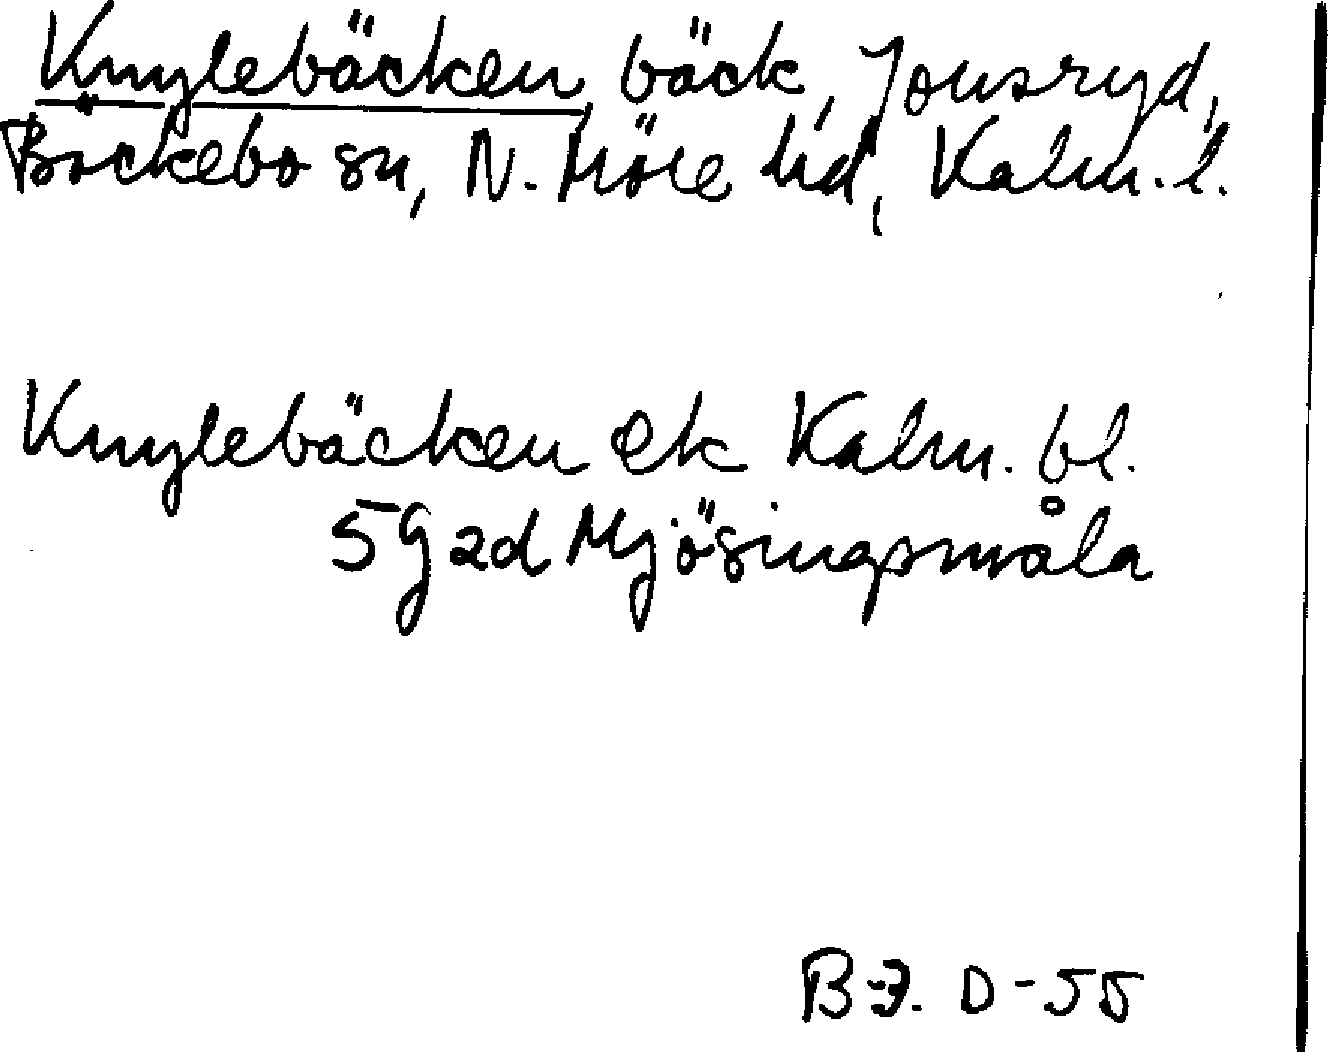 Knylebäcken, bäck, Jonsryd,
Bäckebo sn, N. Möre hd, Kalm. l.
Knylebäcken ek Kalm. bl.
5 g ad Mjösingsmåla
B-J. D-55